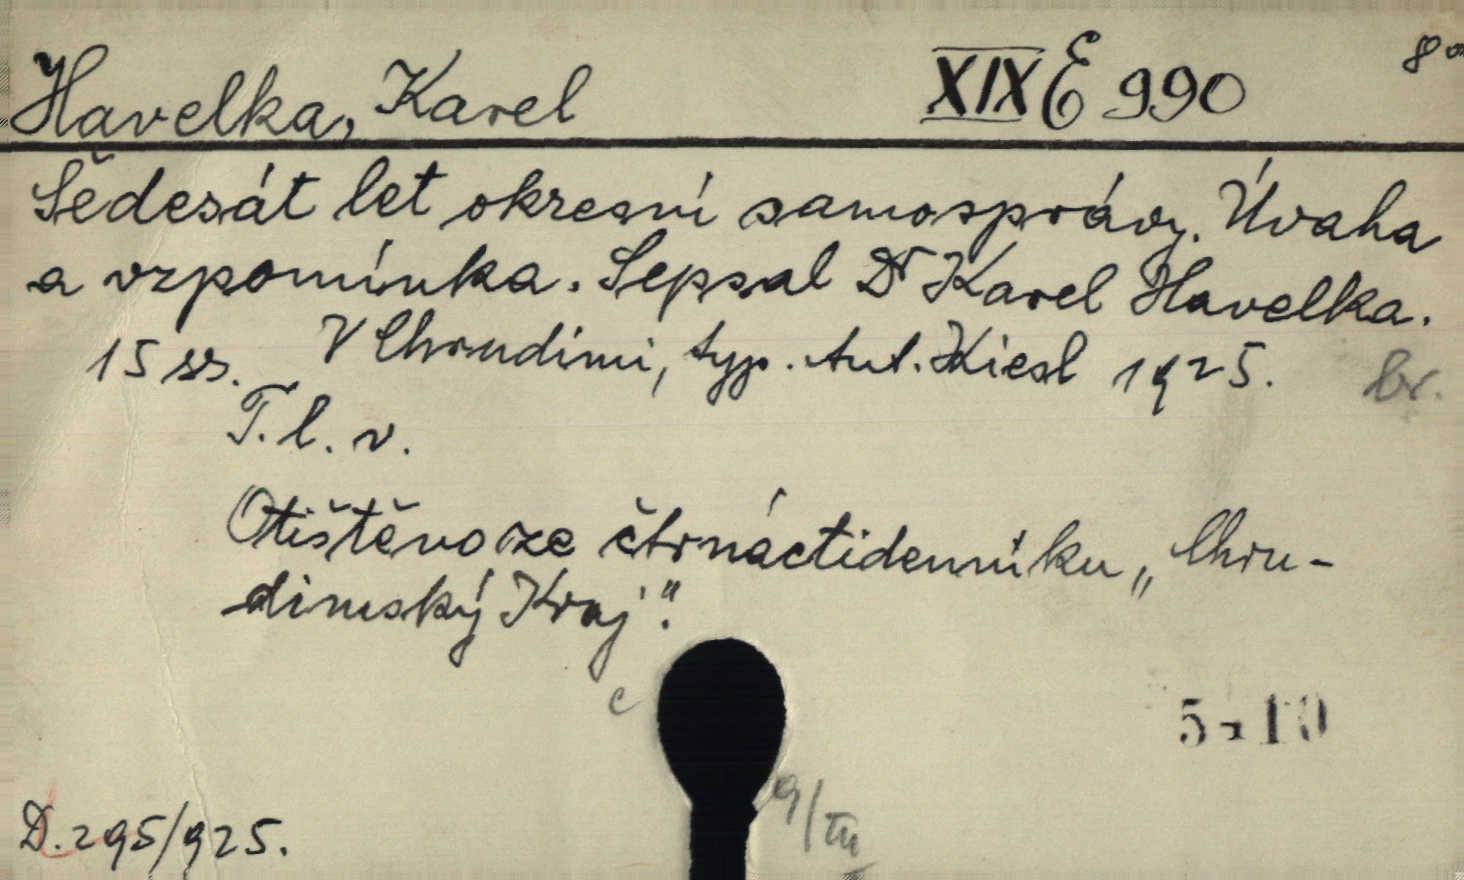 Havelka, Karel XIX E 990 8°
Šedesát let okresní samosprávy. Úvaha
a vzpomínka. Sepsal Dr Karel Havelka.
15 ss. V Chrudimi, typ. Ant. Kiesl 1925. br.
T. l. v.
Otištěno ze čtrnáctidenníku „Chru-
dimský Kraj“.
c
5-10
D. 295/925.